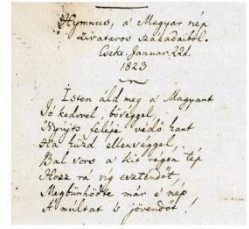 Hymnus, a' Magyar nép
zivataros századaiból.
Cseke. Január. 22d.
1823
Isten áld meg a' Magyart
Jó kedvvel, bőséggel,
Nyújts feléje védő kart
Ha küzd ellenséggel,
Bal sors a' kit régen tép
Hozz rá víg esztendőt
Megbűnhődte már e' nép
A' múltat 's jövendőt!